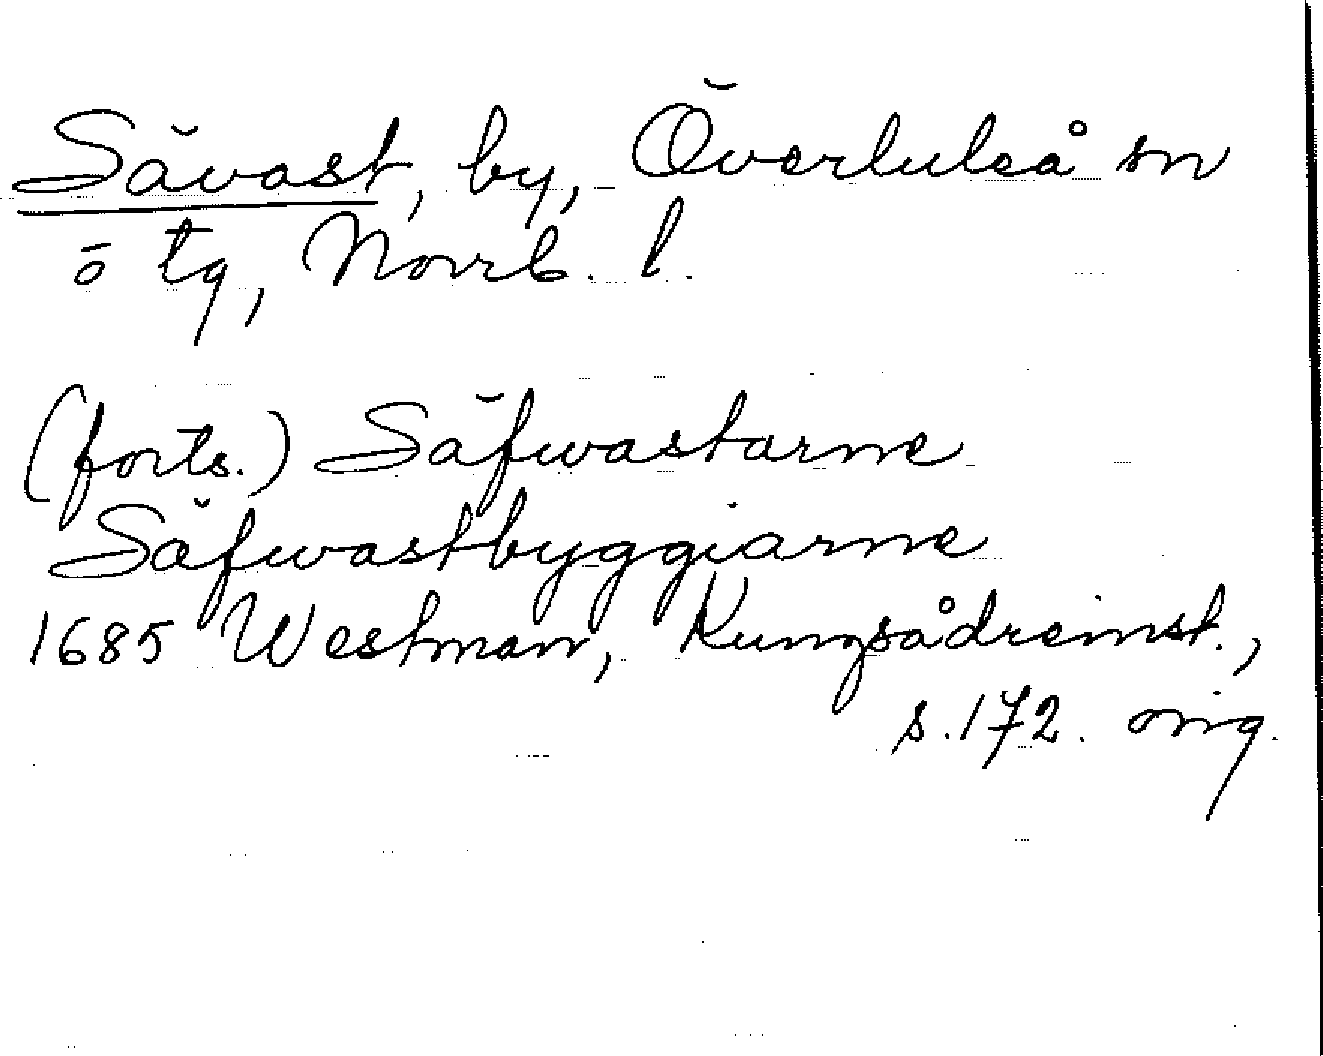 Sävast, by, Överluleå sn
ö tg, Norrb. l.
(forts.) Säfwastarne
Säfwastbyggiarne
1685 Westman, Kungsådreinst.,
s.172. orig.